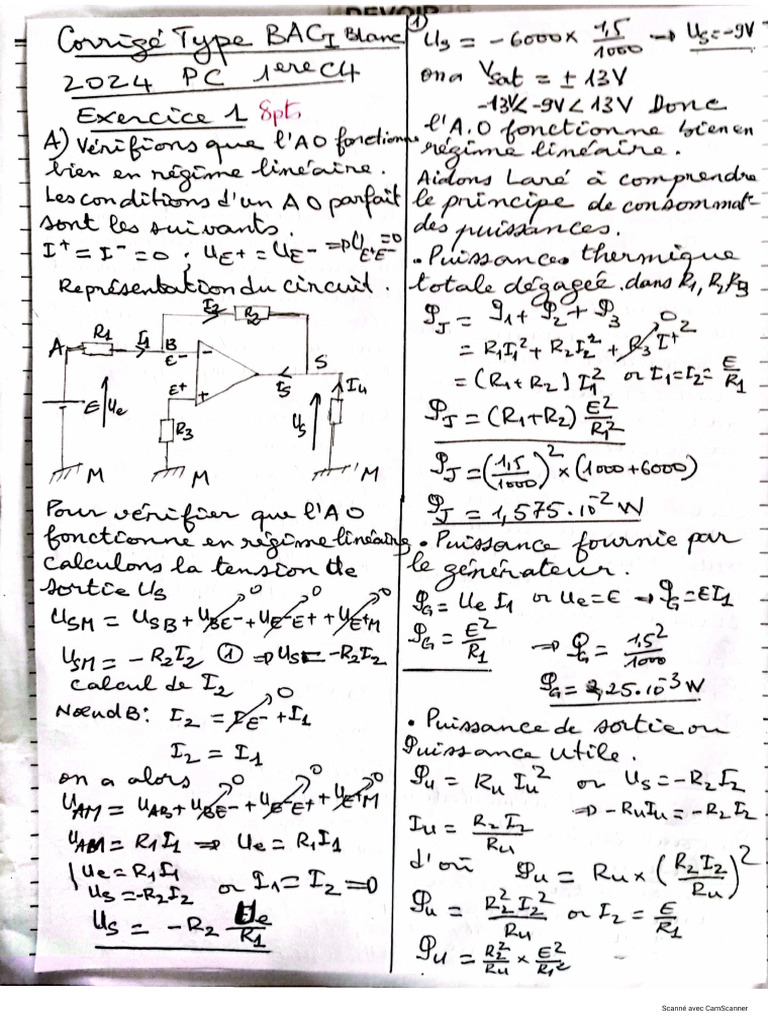 DEVOIR
①
Corrigé Type BAC I Blanc
2024 PC 1ere C4
Exercice 1 8pts
A) Vérifions que l'AO fonctionne
bien en régime linéaire.
Les conditions d'un AO parfait
sont les suivants.
I⁺ = I⁻ = 0 ; U_E+ = U_E- ⇒ U_E+E- = 0
Représentation du circuit.
A R1 I1 B I2 R2
E⁻ - S
E⁺ + Is Iu
E Ue R3 Us
M M M
Pour vérifier que l'AO
fonctionne en régime linéaire
calculons la tension de
sortie Us
U_SM = U_SB + U_BE- + U_E-E+ + U_E+M 0 0 0
U_SM = -R2I2 ① ⇒ Us = -R2I2
calcul de I2
Nœud B: I2 = I_E- + I1 0
I2 = I1
on a alors
U_AM = U_AB + U_BE- + U_E-E+ + U_E+M 0 0 0
U_AM = R1I1 ⇒ Ue = R1I1
{ Ue = R1I1
Us = -R2I2 or I1 = I2 = 0
Us = -R2 Ue/R1
Us = -6000 × 1,5/1000 → Us = -9V
on a Vsat = ± 13V
-13V < -9V < 13V Donc
l'A.O fonctionne bien en
régime linéaire.
Aidons Laré à comprendre
le principe de consommat°
des puissances.
• Puissance thermique
totale dégagée dans R1, R2, R3
𝒫J = 𝒫1 + 𝒫2 + 𝒫3
= R1I1² + R2I2² + R3I⁺² 0
= (R1 + R2) I1² or I1 = I2 = E/R1
𝒫J = (R1 + R2) E²/R1²
𝒫J = (1,5/1000)² × (1000 + 6000)
𝒫J = 1,575.10⁻² W
• Puissance fournie par
le générateur.
𝒫G = Ue I1 or Ue = E → 𝒫G = EI1
𝒫G = E²/R1 ⇒ 𝒫G = 1,5²/1000
𝒫G = 2,25.10⁻³ W
• Puissance de sortie ou
Puissance utile.
𝒫u = Ru Iu² or Us = -R2I2
⇒ -RuIu = -R2I2
Iu = R2I2/Ru
d'où 𝒫u = Ru × (R2I2/Ru)²
𝒫u = R2²I2²/Ru or I2 = E/R1
𝒫u = R2²/Ru × E²/R1²
Scanné avec CamScanner